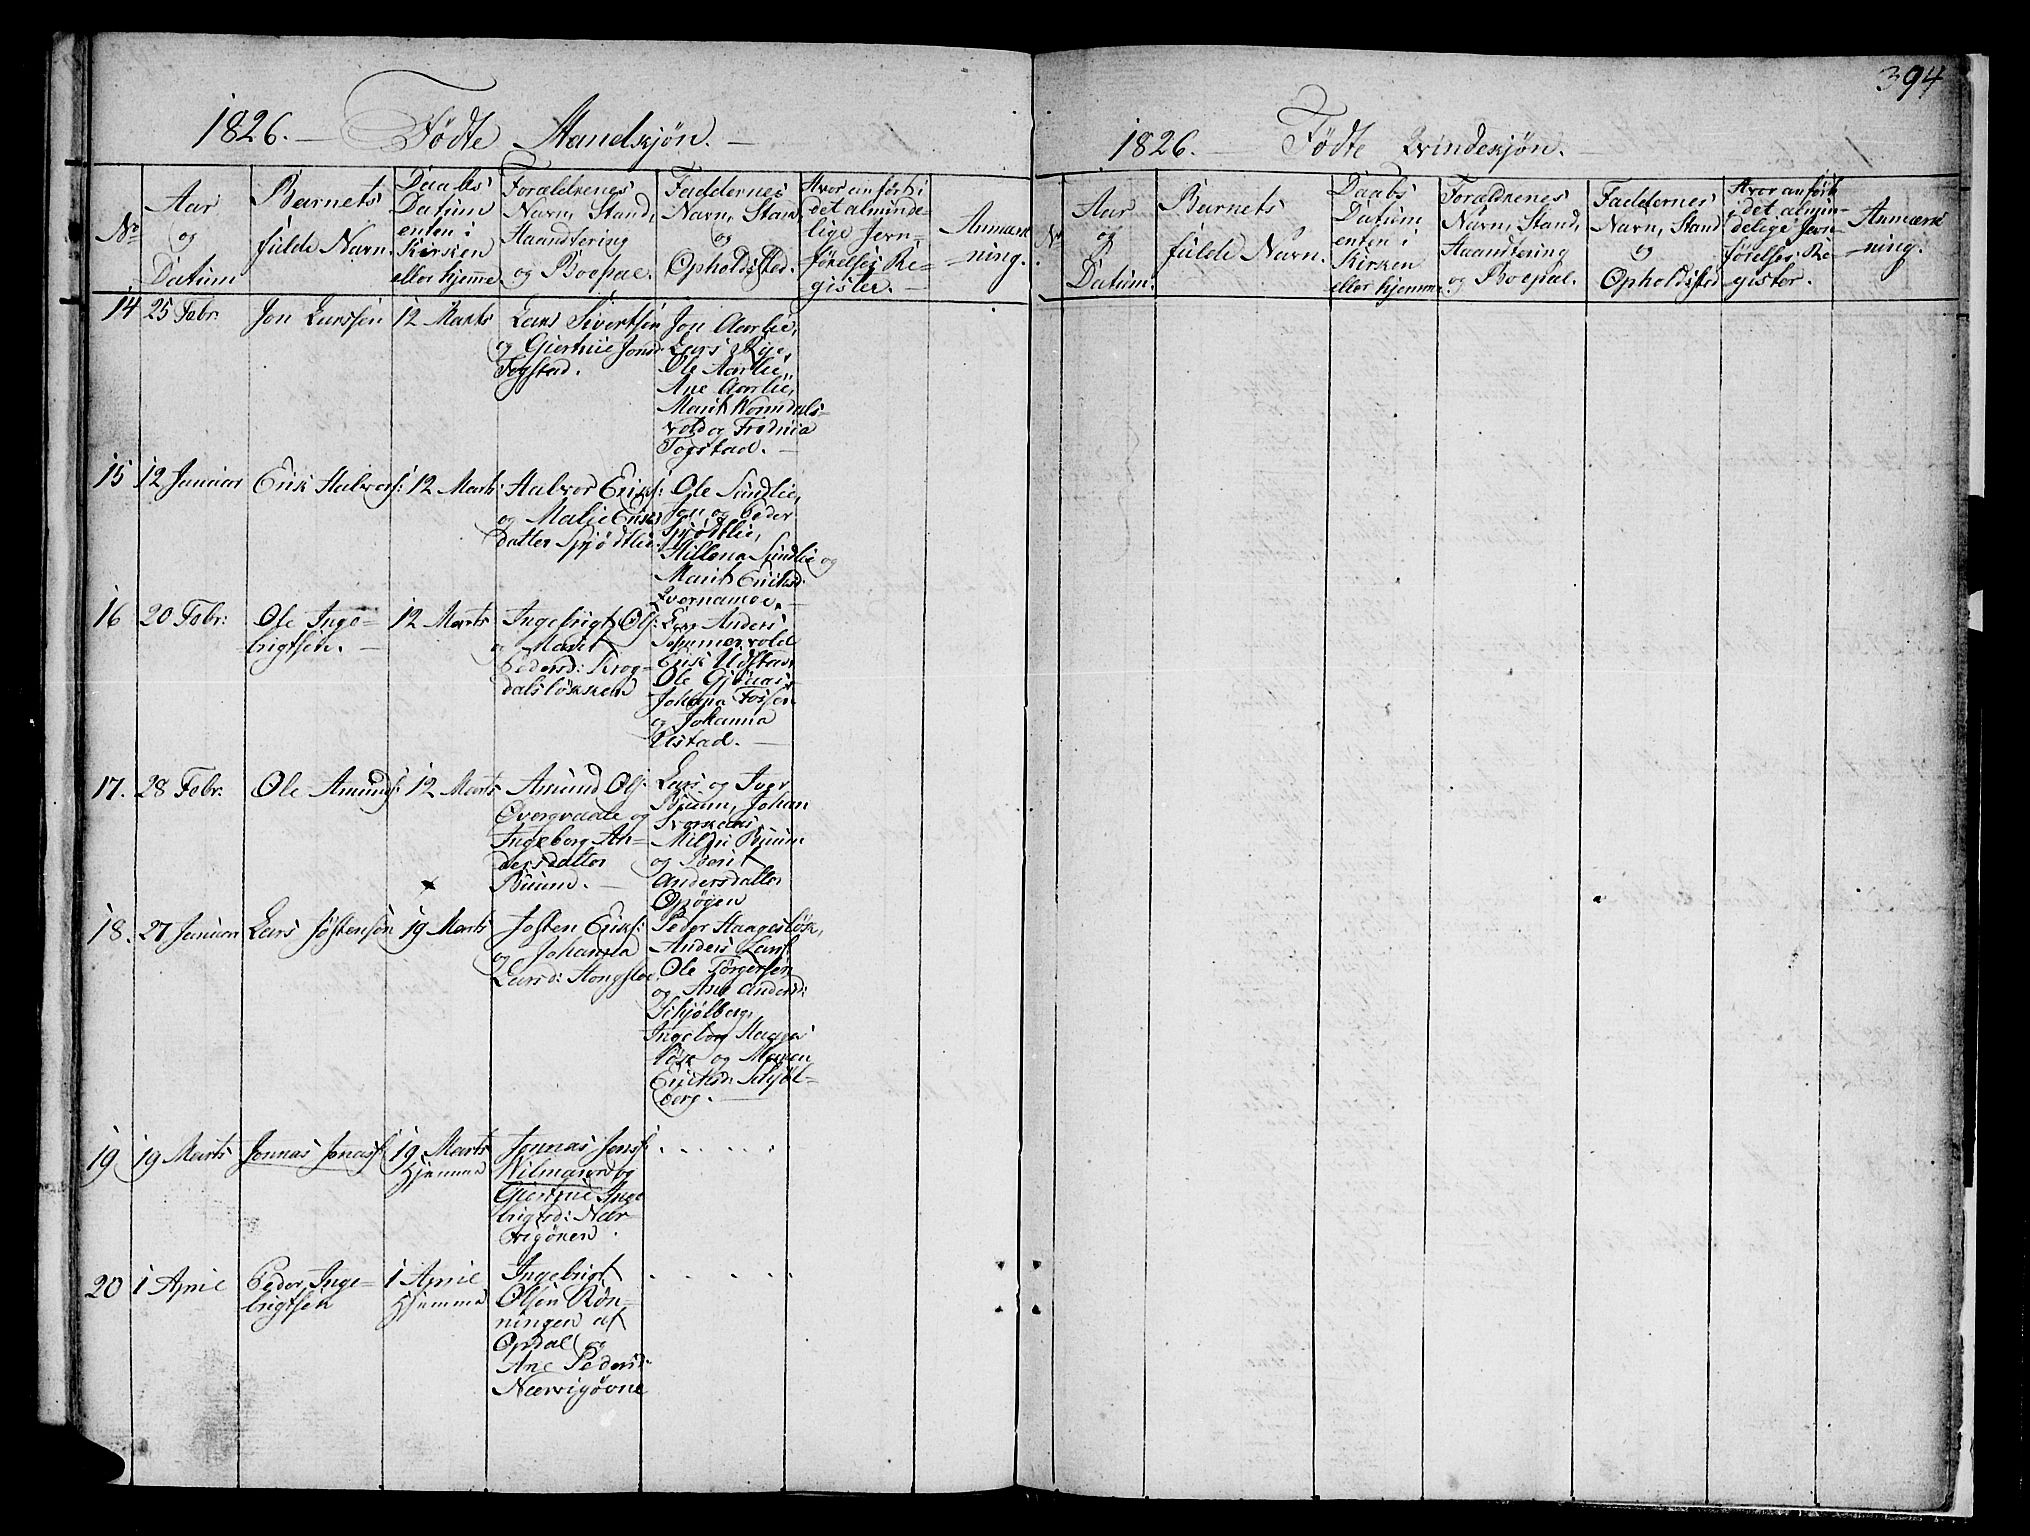 1826. — Fødte Mandkjøn. —
No
Aar
og
Datum
Barnets
fulde Navn.
Daabs
Datum
enten i
Kirken
eller hjemme
Forældrenes
Navn, Stand,
Haandtering
og Boepæl.
Faddernes
Navn, Stand
og
Opholdsted.
Hvor anført i
det alminde-
lige Jevn-
førelses Re-
gister. —
Anmærk
-ning.
14
25 Febr.
Jon Larssen
12 Marts
Lars Sivertsen
og Giertrue Jonsd
Fogstad.
Jon Aarlie,
Lars Rye,
Ole Aarlie,
Ane Aarlie,
Marit
vold og
Fogstad. —
15
12 Januar
Erik Halvors:
12 Marts
Halvor Eriks:
og Malie Eriks
datter Spjødtlie
Ole Sundlie,
Jon og Peder
Spjødtlie,
Sundlie og
Marit Eriksd:
16
20 Febr:
Ole Inge-
brigtsen. —
12 Marts
Ingebrigt Ols:
og Marit
Pedersd: Krog-
dalsløkken
Anders
Erik Ustad,
Ole
Johana Fossen
og Johanna
Ustad. —
17.
28 Febr.
Ole Amunds:
12 Marts
Amund Ols:
og
Ingeborg An-
dersdatter
Buum. —
Lars og Iver
Buum, Johan
Buum
og Berit
Andersdatter
18.
27 Januar
Lars Jøstensøn
19 Marts
Josten Eriks:
og Johanna
Larsd: Stongsloe
Peder
Anders
Ole Torgersen
og Ane Andersd:
Schjølberg,
Ingeborg Haages
løk og Maren
Eriksd: Schjøl-
berg. —
19
19 Marts
Jonnas Jonass:
19 Marts
hjemme
Jonnas Jonss:
Wilmann og
Giertrue Inge
brigtsd: Nær-
vigønen.
. . . . . .
20
1 April
Peder Inge-
brigtsen
1 April
hjemme
Ingebrigt
Olsøn Røn-
ningen af
Opdal og
Ane Pedersd:
Nærvigøvne
. . . . . .
394
1826. — Fødte Qvindekjøn. —
No
Aar
og
Datum.
Barnets
fulde Navn.
Daabs
Datum
enten i
Kirken
eller hjemme
Forældrenes
Navn, Stand,
Haandtering
og Boepæl.
Faddernes
Navn, Stand
og
Opholdsted
Hvor anført
i det almin-
delige Jevn-
førelses Re-
gister.
Anmærk
-ning.